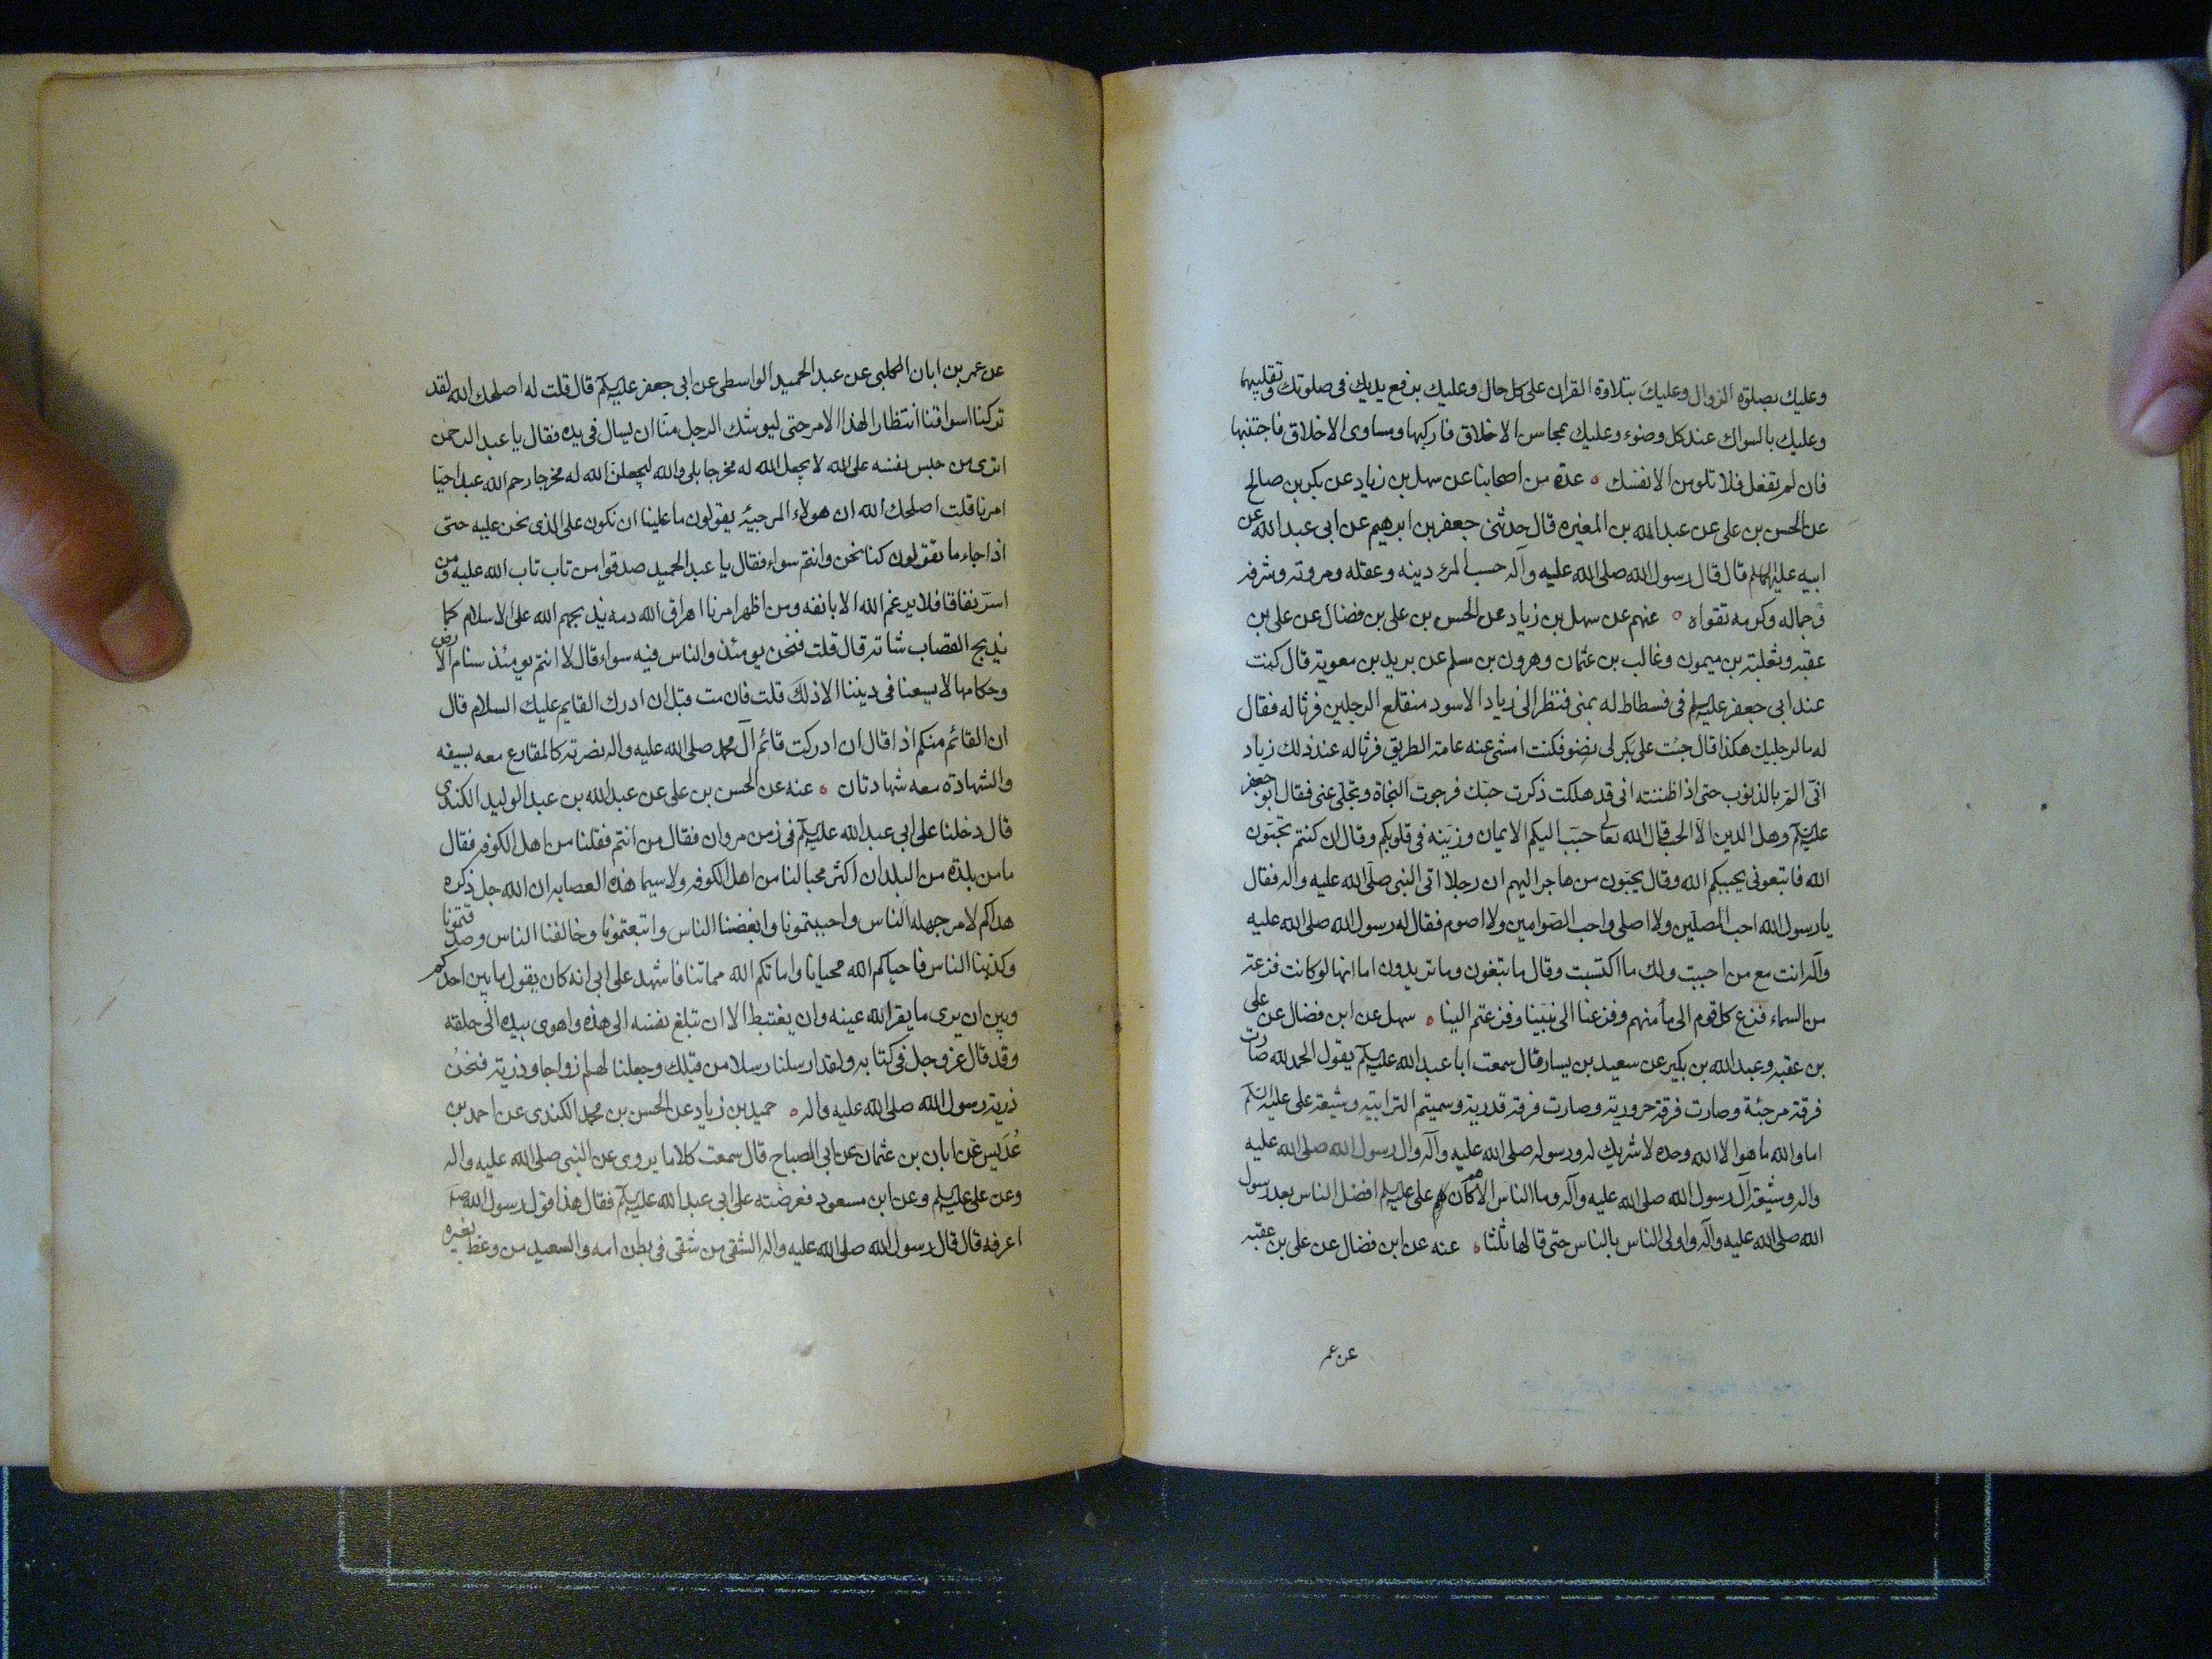 وعليك بصلوة الزوال وعليك بتلاوة القران على كل حال وعليك برفع يديك فى صلوتك وتقليبهما
وعليك بالسواك عند كل وضوء وعليك بمحاسن الاخلاق فاركبها ومساوى الاخلاق فاجتنبها
فان لم تفعل فلا تلومن الا نفسك ه عدة من اصحابنا عن سهل بن زياد عن بكر بن صالح
عن الحسن بن على عن عبد الله بن المغيره قال حدثنى جعفر بن ابرهيم عن ابى عبد الله عن
ابيه عليهما السلم قال قال رسول الله صلى الله عليه وآله حسب المرء دينه وعقله ومروته وشرفه
وجماله وكرمه تقواه ه عنهم عن سهل بن زياد عن الحسن بن على بن فضال عن على بن
عقبه وثعلبة بن ميمون وغالب بن عثمان وهرون بن مسلم عن بريد بن معوية قال كنت
عند ابى جعفر عليه السلم فى فسطاط له بمنى فنظر الى زياد الاسود منقلع الرجلين فرثا له فقال
له ما لرجليك هكذا قال جئت على بكر لى نضو فكنت امشى عنه عامة الطريق فرثا له عند ذلك زياد
انى الم بالذنوب حتى اذا ظننته انى قد هلكت ذكرت حبك فرجوت النجاة وتجلى عنى فقال ابو جعفر
عليه السلم وهل الدين الا الحب قال الله تعا حبب اليكم الايمان وزينه فى قلوبكم وقال ان كنتم تحبون
الله فاتبعونى يحببكم الله وقال يحبون من هاجر اليهم ان رجلا اتى النبى صلى الله عليه واله فقال
يا رسول الله احب المصلين ولا اصلى واحب الصوامين ولا اصوم فقال له رسول الله صلى الله عليه
وآله انت مع من احببت ولك ما اكتسبت وقال ما تبغون وما تريدون اما انها لو كانت فزعة
من السماء فزع كل قوم الى مأمنهم وفزعنا الى نبينا وفزعتم الينا ه سهل عن ابن فضال عن على
بن عقبه وعبد الله بن بكير عن سعيد بن يسار قال سمعت ابا عبد الله عليه السلم يقول الحمد لله صارت
فرقة مرجئة وصارت فرقة حرورية وصارت فرقة قدرية وسميتم الترابية وشيعة على عليه السلم
اما والله ما هو الا الله وحده لا شريك له ورسوله صلى الله عليه وآله وال رسول الله صلى الله عليه
واله وشيعة آل رسول الله صلى الله عليه وآله وما الناس الا هم كان على عليه السلم افضل الناس بعد رسول
الله صلى الله عليه وآله واولى الناس بالناس حتى قالها ثلثا ه عنه عن ابن فضال عن على بن عقبه
عن عمر
عن عمر بن ابان الكلبى عن عبد الحميد الواسطى عن ابى جعفر عليه السلم قال قلت له اصلحك الله لقد
تركنا اسواقنا انتظارا لهذا الامر حتى ليوشك الرجل منا ان يسال فى يده فقال يا عبد الرحمن
اترى من حبس نفسه على الله لا يجعل الله له مخرجا بلى والله ليجعلن الله له مخرجا رحم الله عبدا احيا
امرنا قلت اصلحك الله ان هولاء المرجيئه يقولون ما علينا ان نكون على الذى نحن عليه حتى
اذا جاء ما تقولون كنا نحن وانتم سواء فقال يا عبد الحميد صدقوا من تاب تاب الله عليه ومن
اسر نفاقا فلا يرغم الله الا بانفه ومن اظهر امرنا اهراق الله دمه يذبحهم الله على الاسلام كما
يذبح القصاب شاته قال قلت فنحن يومئذ والناس فيه سواء قال لا انتم يومئذ سنام الارض
وحكامها لا يسعنا فى ديننا الا ذلك قلت فان مت قبل ان ادرك القايم عليك السلام قال
ان القائم منكم اذا قال ان ادركت قائم آل محمد صلى الله عليه واله نصرته كالمقارع معه بسيفه
والشهادة معه شهادتان ه عنه عن الحسن بن على عن عبد الله بن عبد الوليد الكندى
قال دخلنا على ابى عبد الله عليه السلم فى زمن مروان فقال من انتم فقلنا من اهل الكوفه فقال
ما من بلدة من البلدان اكثر محبا لنا من اهل الكوفه ولا سيما هذه العصابه ان الله جل ذكره
هداكم لامر جهله الناس واحببتمونا وابغضنا الناس واتبعتمونا وخالفنا الناس وصدقتمونا
وكذبنا الناس فاحياكم الله محيانا واماتكم الله مماتنا فاشهد على ابى انه كان يقول ما بين احدكم
وبين ان يرى ما يقر الله عينه وان يغتبط الا ان تبلغ نفسه الى هذه واهوى بيده الى حلقه
وقد قال عز وجل فى كتابه ولقد ارسلنا رسلا من قبلك وجعلنا لهم ازواجا وذرية فنحن
ذرية رسول الله صلى الله عليه واله ه حميد بن زياد عن الحسن بن محمد الكندى عن احمد بن
عديس عن ابان بن عثمان عن ابى الصباح قال سمعت كلاما يروى عن النبى صلى الله عليه واله
وعن على عليه السلم وعن ابن مسعود فعرضته على ابى عبد الله عليه السلم فقال هذا قول رسول الله صه
اعرفه قال قال رسول الله صلى الله عليه واله الشقى من شقى فى بطن امه والسعيد من وعظ بغيره